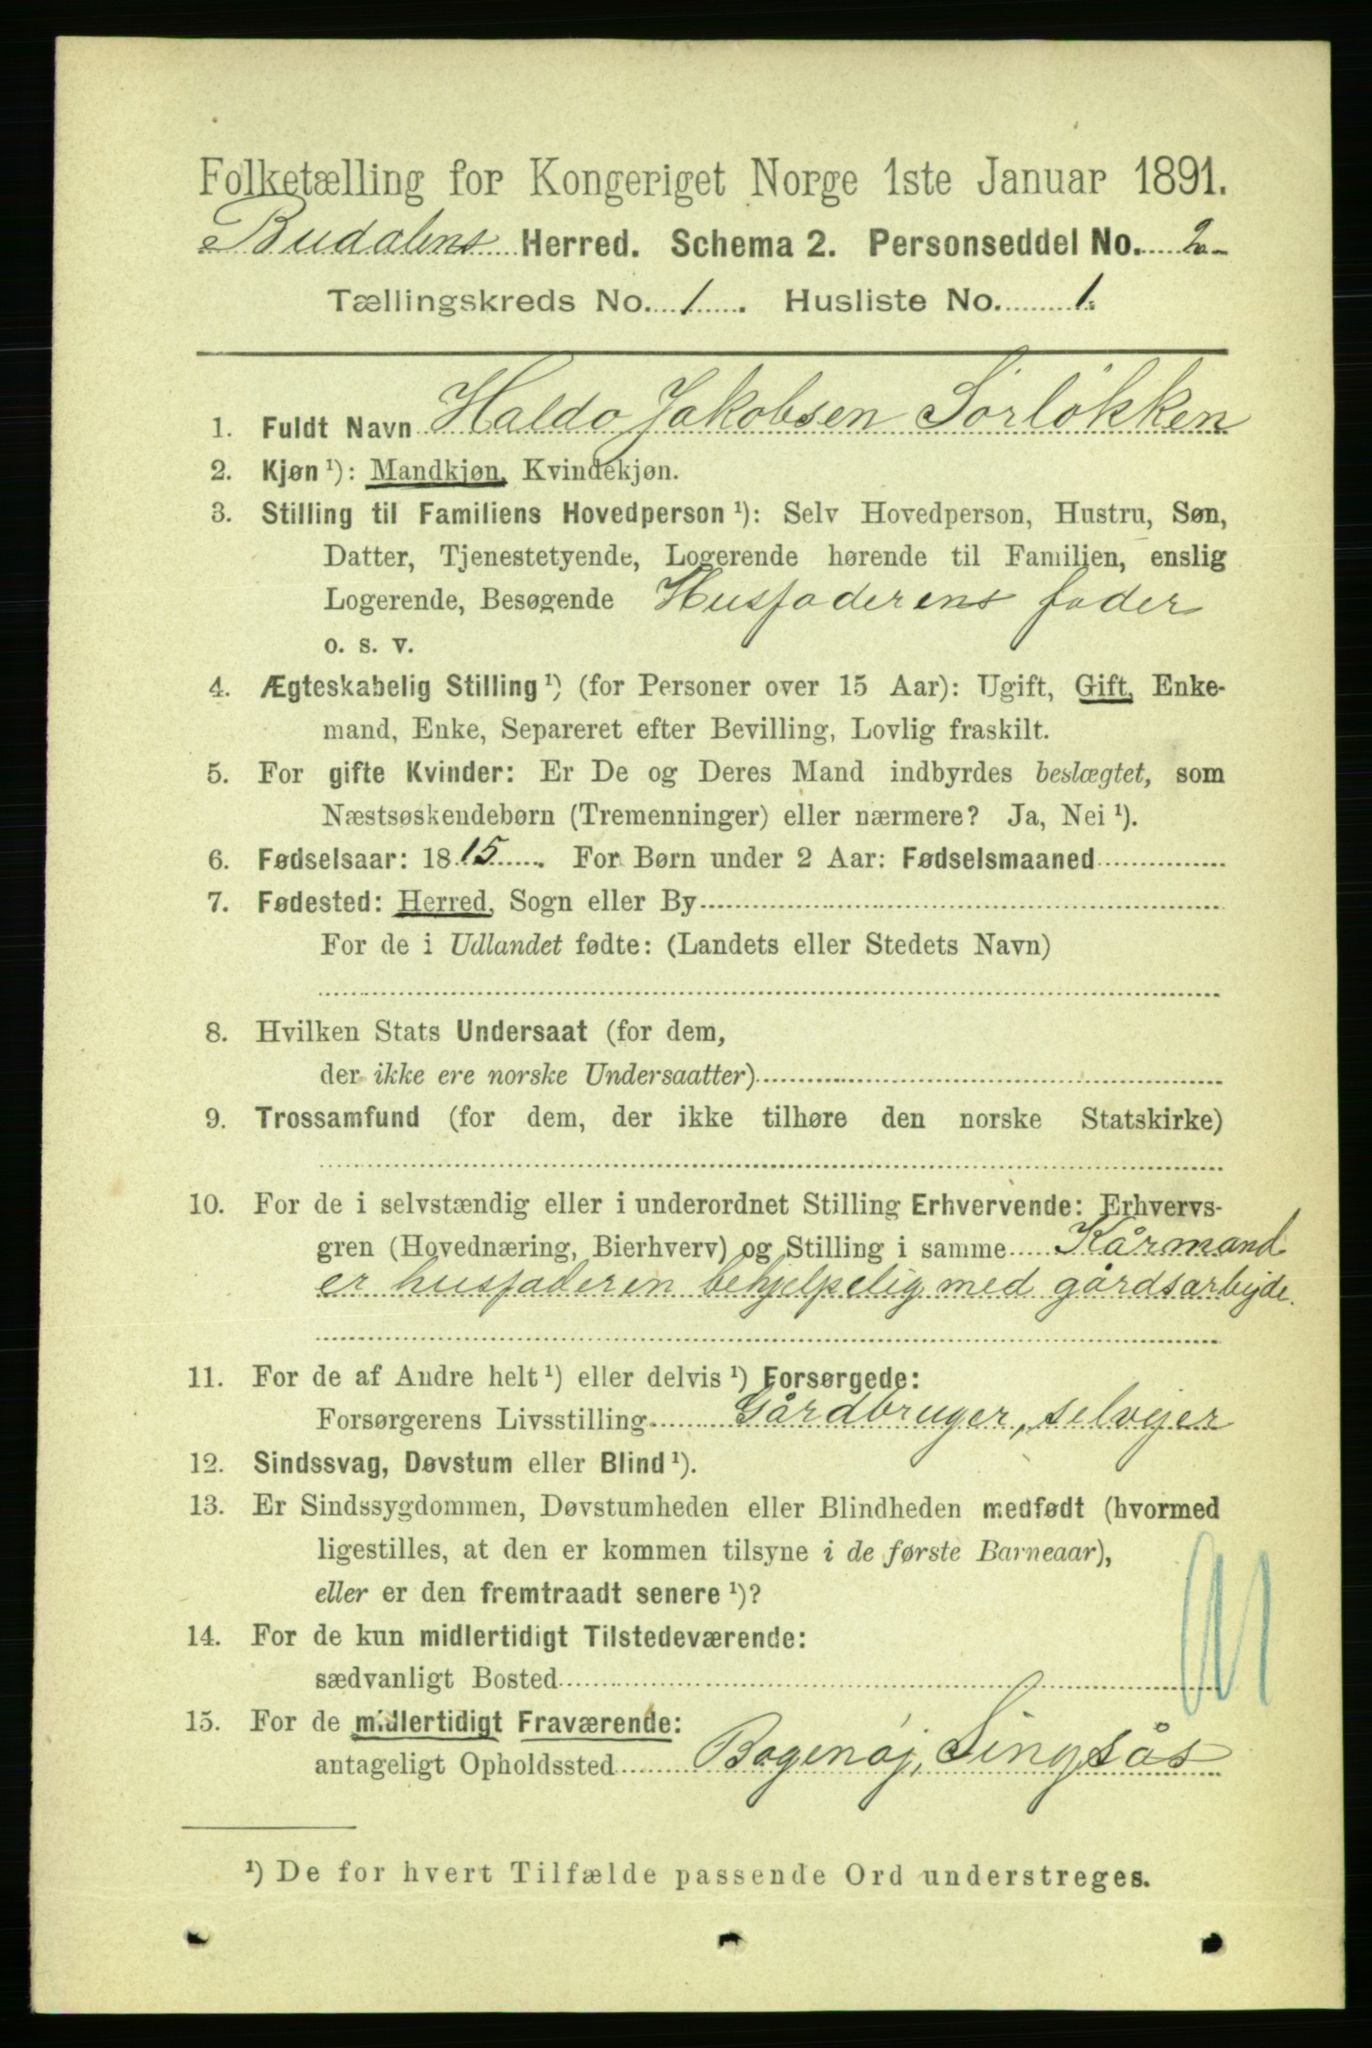 Folketælling for Kongeriget Norge 1ste Januar 1891.
Budalens Herred. Schema 2. Personseddel No. 2
Tællingskreds No. 1. Husliste No. 1.
1. Fuldt Navn Haldo Jakobsen Sørløkken
2. Kjøn ¹): Mandkjøn, Kvindekjøn.
3. Stilling til Familiens Hovedperson ¹): Selv Hovedperson, Hustru, Søn,
Datter, Tjenestetyende, Logerende hørende til Familien, enslig
Logerende, Besøgende Husfaderens fader
o. s. v.
4. Ægteskabelig Stilling ¹) (for Personer over 15 Aar): Ugift, Gift, Enke-
mand, Enke, Separeret efter Bevilling, Lovlig fraskilt.
5. For gifte Kvinder: Er De og Deres Mand indbyrdes beslægtet, som
Næstsøskendebørn (Tremenninger) eller nærmere? Ja, Nei ¹).
6. Fødselsaar: 1815. For Børn under 2 Aar: Fødselsmaaned
7. Fødested: Herred, Sogn eller By
For de i Udlandet fødte: (Landets eller Stedets Navn)
8. Hvilken Stats Undersaat (for dem,
der ikke ere norske Undersaatter)
9. Trossamfund (for dem, der ikke tilhøre den norske Statskirke)
10. For de i selvstændig eller i underordnet Stilling Erhvervende: Erhvervs-
gren (Hovednæring, Bierhverv) og Stilling i samme Kårmand
er husfaderen behjelpelig med gårdsarbejde.
11. For de af Andre helt ¹) eller delvis ¹) Forsørgede:
Forsørgerens Livsstilling Gårdbruger, selvejer
12. Sindssvag, Døvstum eller Blind ¹).
13. Er Sindssygdommen, Døvstumheden eller Blindheden medfødt (hvormed
ligestilles, at den er kommen tilsyne i de første Barneaar),
eller er den fremtraadt senere ¹)?
14. For de kun midlertidigt Tilstedeværende:
sædvanligt Bosted
15. For de midlertidigt Fraværende:
antageligt Opholdssted Bogenøj, Singsås
¹) De for hvert Tilfælde passende Ord understreges.